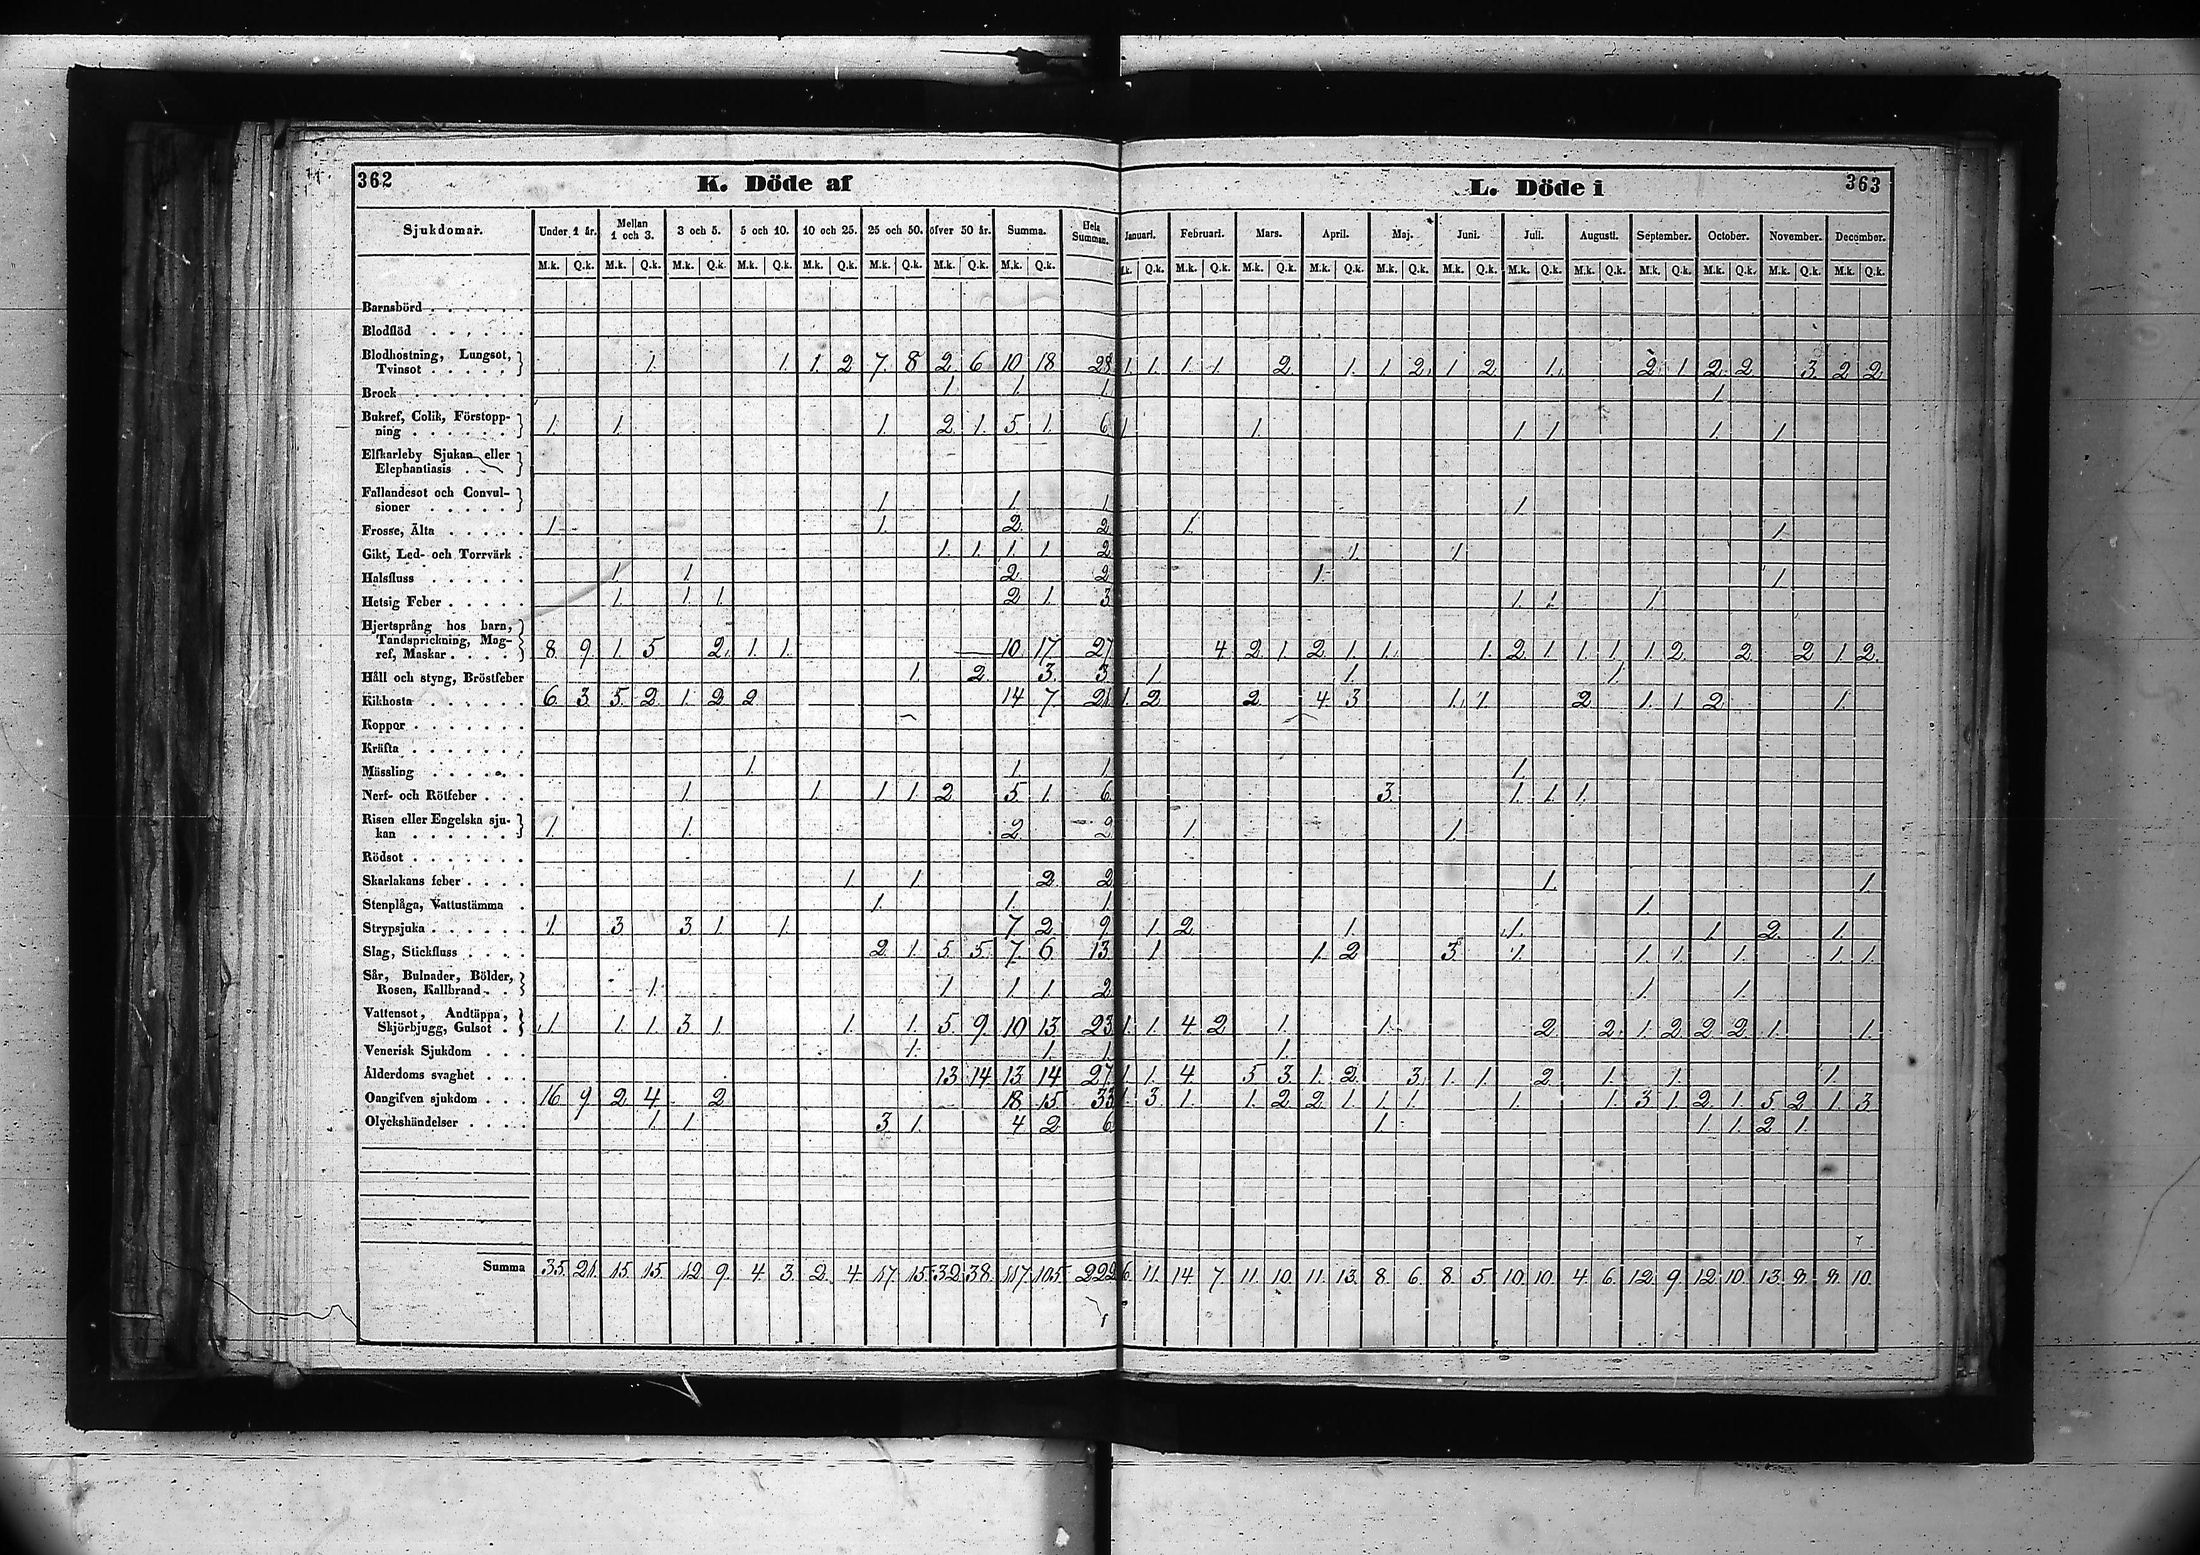 362 K. Döde af
L. Döde i 363
Sjukdomar. Under 1 år. Mellan 1 och 3. 3 och 5. 5 och 10. 10 och 25. 25 och 50. öfver 50 år. Summa. Hela Summan.
Januari. Februari. Mars. April. Maj. Juni. Juli. Augusti. September. October. November. December.
M.k. Q.k. M.k. Q.k. M.k. Q.k. M.k. Q.k. M.k. Q.k. M.k. Q.k. M.k. Q.k. M.k. Q.k.
M.k. Q.k. M.k. Q.k. M.k. Q.k. M.k. Q.k. M.k. Q.k. M.k. Q.k. M.k. Q.k. M.k. Q.k. M.k. Q.k. M.k. Q.k. M.k. Q.k. M.k. Q.k.
Barnsbörd
Blodflöd
Blodhostning, Lungsot,
Tvinsot 1. 1. 1. 2 7. 8 2. 6 10 18 28 1. 1. 1. 1. 2. 1. 1. 2. 1. 2. 1. 2. 1 2. 2. 3. 2 2
Brock 1. 1. 1. 1.
Bukref, Colik, Förstopp-
ning 1. 1. 1. 2. 1. 5 1. 6 1. 1. 1. 1. 1. 1.
Elfkarleby Sjukan eller
Elephantiasis
Fallandesot och Convul-
sioner 1. 1. 1. 1.
Frosse, Älta 1. 1. 2. 2 1. 1.
Gikt, Led- och Torrvärk 1. 1. 1. 1. 2 1. 1.
Halsfluss 1. 1. 2. 2 1. 1.
Hetsig Feber 1. 1. 1. 2 1. 3 1. 1. 1.
Hjertsprång hos barn,
Tandsprickning, Mag-
ref, Maskar 8. 9. 1. 5 2. 1. 1. 10 17 27 4 2. 1 2. 1. 1. 1. 2. 1. 1. 1. 1. 2. 2. 2 1. 2.
Håll och styng, Bröstfeber 1. 2. 3. 3 1. 1. 1.
Kikhosta 6. 3. 5. 2. 1. 2 2 14 7. 21 1. 2. 2 4. 3 1. 1. 2. 1. 1. 2. 1.
Koppor
Kräfta
Mässling 1. 1. 1. 1.
Nerf- och Rötfeber 1. 1. 1. 1. 2. 5. 1. 6 3. 1. 1. 1.
Risen eller Engelska sju-
kan 1. 1. 2. 2 1. 1.
Rödsot
Skarlakans feber 1. 1. 2 2 1. 1.
Stenplåga, Vattustämma 1. 1. 1. 1.
Strypsjuka 1. 3 3 1. 1. 7 2. 9. 1. 2. 1. 1. 1. 2. 1.
Slag, Stickfluss 2. 1. 5. 5. 7. 6 13 1. 1. 2. 3 1. 1. 1. 1. 1. 1.
Sår, Bulnader, Bölder,
Rosen, Kallbrand 1. 1. 1. 1. 2 1. 1.
Vattensot, Andtäppa,
Skjörbjugg, Gulsot 1. 1. 1. 3 1. 1. 1. 5. 9. 10 13. 23 1. 1. 4. 2 1. 1. 2. 2. 1. 2. 2. 2. 1. 1.
Venerisk Sjukdom 1. 1. 1. 1.
Ålderdoms svaghet 13 14 13 14 27 1. 1. 4. 5 3. 1. 2. 3. 1. 1. 2. 1. 1. 1.
Oangifven sjukdom 16 9 2 4. 2 18. 15. 33 1. 3. 1. 1. 2. 2. 1. 1. 1. 1. 1. 3 1. 2. 1. 5 2. 1. 3
Olyckshändelser 1. 1. 3 1. 4 2 6 1. 1. 1. 2 1.
Summa 35. 21. 15. 15. 12 9. 4 3. 2. 4 17. 15. 32. 38. 117. 105 222 6. 11. 14 7. 11. 10. 11. 13. 8. 6. 8. 5 10. 10. 4 6. 12. 9. 12. 10. 13. 8. 8. 10.